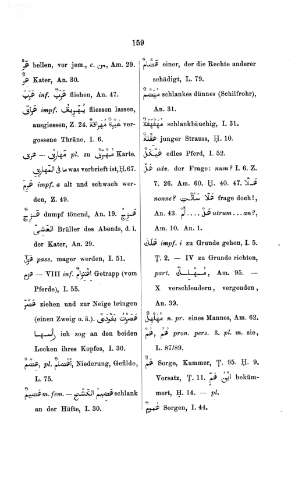 159
هرّ bellen, vor jem., c. من, Am. 29.
هرّ Kater, An. 30.
هرب inf. هرب fliehen, An. 47.
impf. يهريق fliessen lassen,
ausgiessen, Z. 24. مهراقة ver-
gossene Thräne, I. 6.
pl. مهارق zu Karte.
was verbrieft ist, H. 67.
هرم impf. a alt und schwach wer-
den, Z. 49.
dumpf tönend, An. 19.
Brüller des Abends, d. i.
der Kater, An. 29.
pass. mager werden, I. 51.
هزم — VIII inf. اهتزام Getrapp (vom
Pferde), I. 55.
هصر ziehen und zur Neige bringen
(einen Zweig u. ä.).
ich zog an den beiden
Locken ihres Kopfes, I. 30.
هضم, pl. Niederung, Gefilde,
L. 75.
هضيم m. fem. — هضيم الكشح schlank
an der Hüfte, I. 30.
einer, der die Rechte anderer
schädigt, L. 79.
schlankes dünnes (Schilfrohr),
An. 31.
مهفهفة schlankbäuchig, I. 31.
junger Strauss, H. 10.
هيكل edles Pferd, I. 52.
هل adv. der Frage: num? I. 6. Z.
7. 26. Am. 60. H. 40. 47. هلّا
nonne? هلّا سألت frage doch!,
An. 43. هل — أم utrum ... an?,
Am. 10. An. 1.
هلك impf. i zu Grunde gehen, I. 5.
T. 2. — IV zu Grunde richten,
part. Am. 95. —
X verschleudern, vergeuden,
An. 39.
مهلهل n. pr. eines Mannes, Am. 62.
هم, هم pron. pers. 3. pl. m. sie,
L. 87/89.
همّ Sorge, Kummer, T. 95. H. 9.
Vorsatz, T. 11. beküm-
mert, H. 14. — pl.
هموم Sorgen, I. 44.